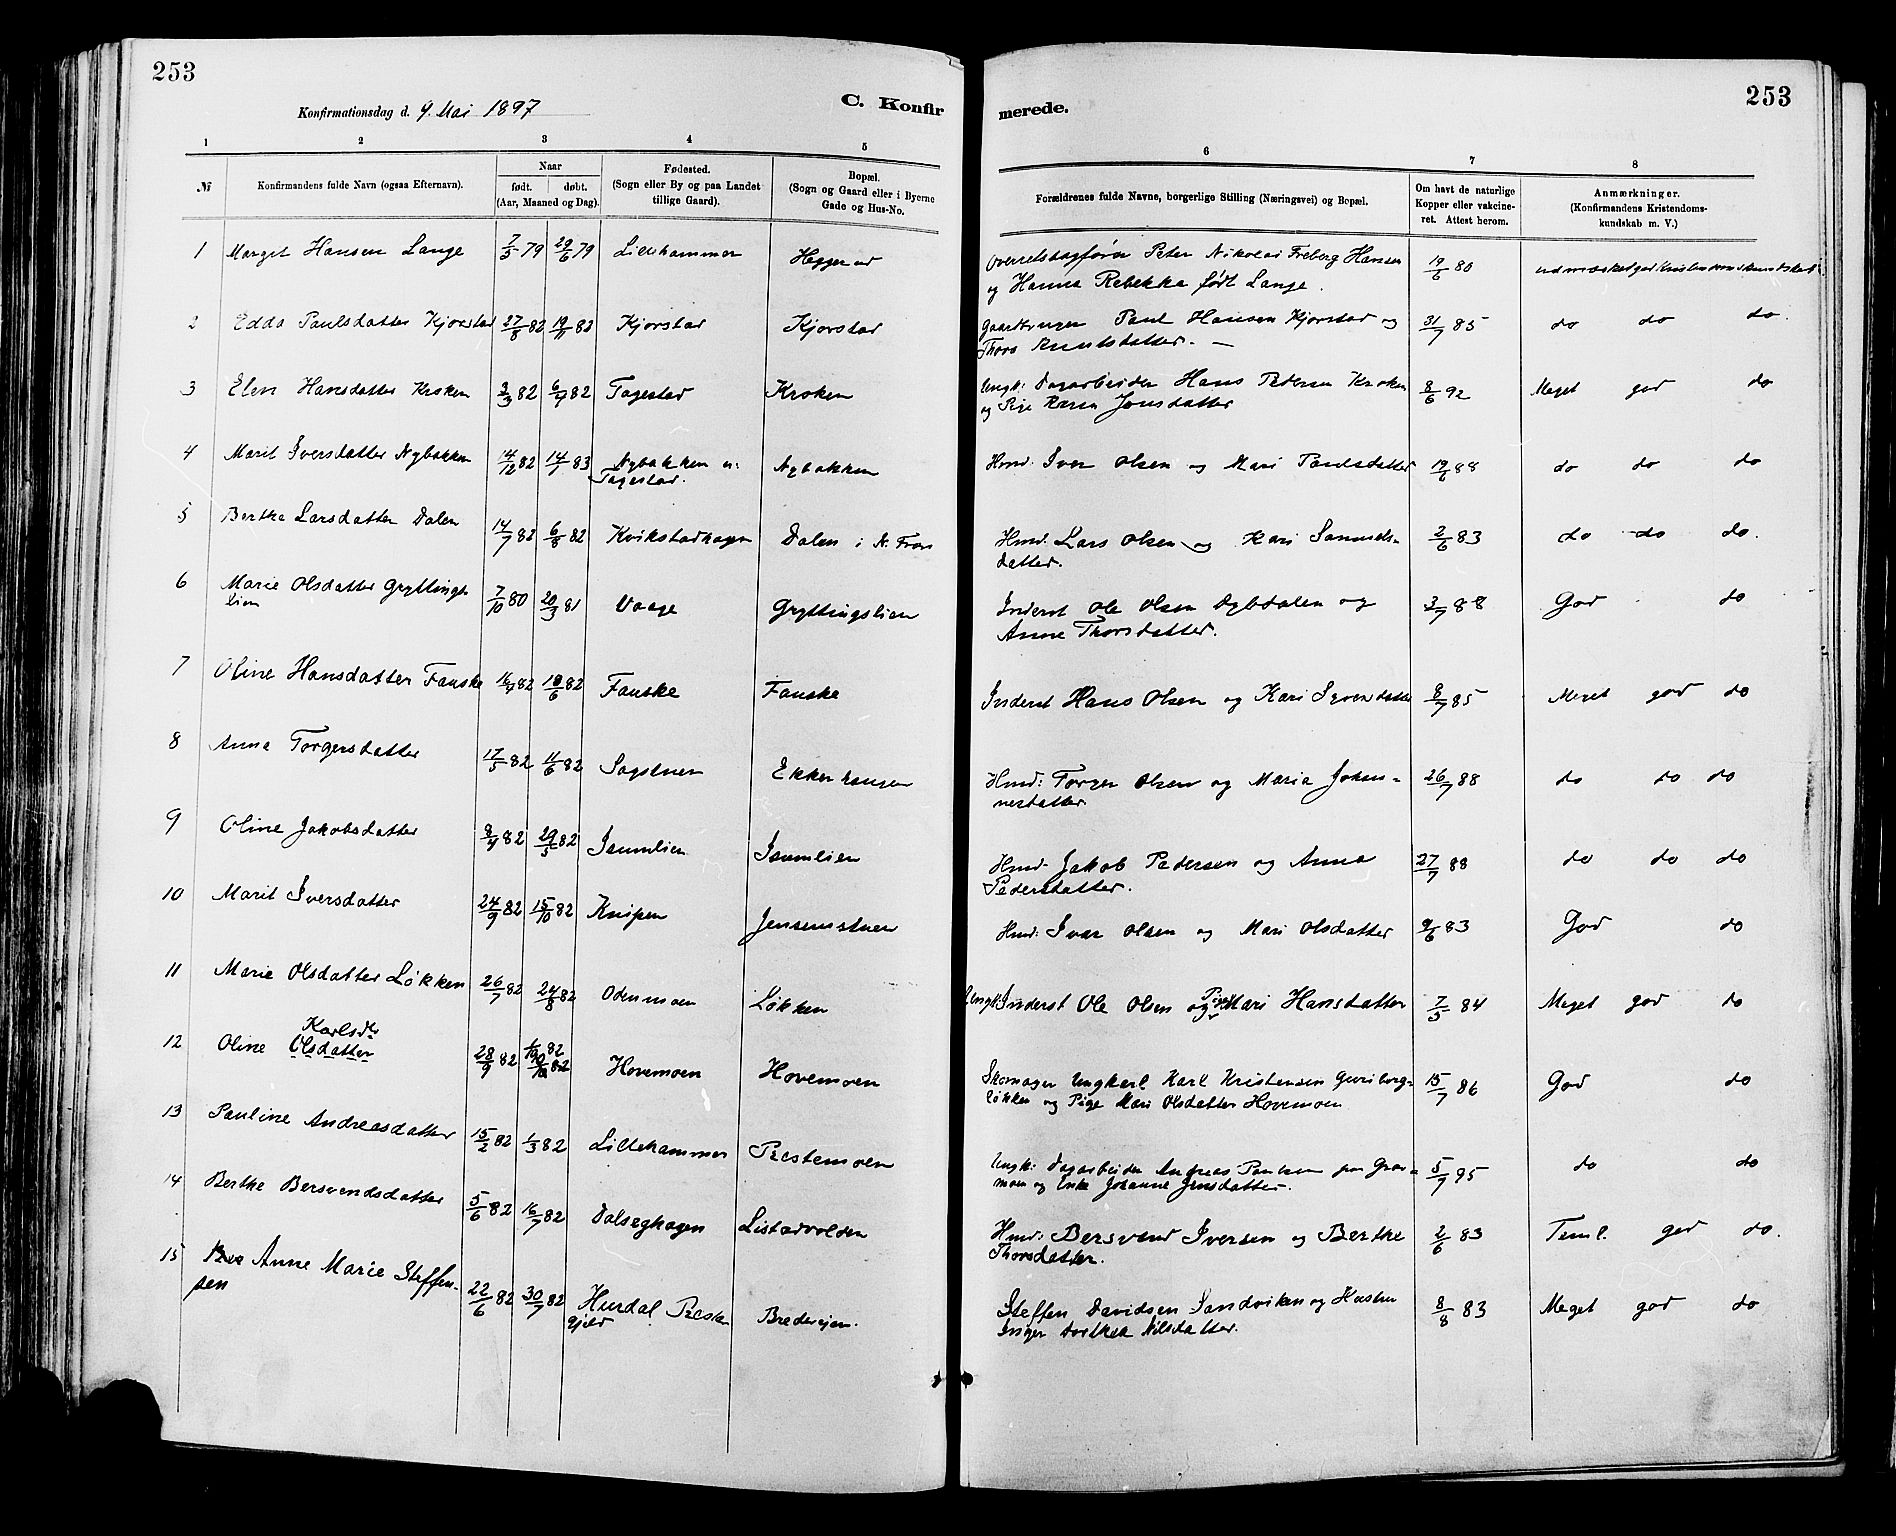 253
253
Konfirmationsdag d. 9. Mai 1897
C. Konfir
merede.
1 2 3 4 5
6 7 8
№ Konfirmandens fulde Navn (ogsaa Efternavn).
Naar
født. døbt.
(Aar, Maaned og Dag).
Fødested.
(Sogn eller By og paa Landet
tillige Gaard).
Bopæl.
(Sogn og Gaard eller i Byerne
Gade og Hus-No.
Forældrenes fulde Navne, borgerlige Stilling (Næringsvei) og Bopæl.
Om havt de naturlige
Kopper eller vakcine-
ret. Attest herom.
Anmærkninger.
(Konfirmandens Kristendoms-
kundskab m. V.)
1 Marget Hansen Lange 7/5 79 29/6 79 Lillehammer Heggerud
Peter Nikolai Freberg Hansen 19/6 80
og Hanna Rebekka født Lange.
2 Edda Paulsdatter Kjorstad 27/8 82 19/11 82 Kjorstad Kjorstad
Paul Hansen Kjorstad og 31/7 85 do do do.
Thora Knutsdatter. —
3 Elen Hansdatter Kroken 3/3 82 6/7 82 Tagestad Kroken
Ungk: Dagarbeider Hans Pedersen Kroken 8/6 92 Meget god do
og Pige Karen Jonsdatter
4 Marit Iversdatter Nybakken 14/12 82 14/1 83 Nybakken u: Nybakken
Tagestad.
Hmd: Iver Olsen og Mari Paulsdatter 19/6 88 do do do
5 Berthe Larsdatter Dalen 14/7 82 6/8 82 Kvikstadhagen Dalen i N. Fron
Hmd: Lars Olsen og Kari Samuels- 2/6 83 do do do.
datter.
6 Marie Olsdatter Gryttings- 7/10 80 20/3 81 Vaage Gryttingslien
lien
Inderst Ole Olsen Dybdalen og 3/7 88 God do
Anne Thorsdatter.
7 Oline Hansdatter Fauske 16/4 82 18/6 82 Fauske Fauske
Inderst Hans Olsen og Kari Iversdatter 8/7 85 Meget god do
8 Anna Torgersdatter 17/5 82 11/6 82 Sagstuen Ekkerhaugen
Hmd: Torger Olsen og Maria Johan- 26/7 88 do do do
nesdatter
9 Oline Jakobsdatter 8/4 82 29/5 82 Isumlien Isumlien
Hmd: Jakob Pedersen og Anna 27/7 88 do do do
Pedersdatter.
10 Marit Iversdatter 24/9 82 15/10 82 Knipen Jensenstuen
Hmd: Ivar Olsen og Mari Olsdatter 9/6 83 God do
11 Marie Olsdatter Løkken 26/7 82 24/8 82 Odenmoen Løkken
Ungk: Inderst Ole Olsen og Pige Mari Hansdatter 7/5 84 Meget god do
Karlsdtr
12 Oline Olsdatter 28/9 82 Hovemoen Hovemoen
Skomager Ungkarl Karl Kristensen Guriborg- 15/7 86 God do
løkken og Pige Mari Olsdatter Hovemoen
13 Pauline Andreasdatter 15/2 82 1/3 82 Lillehammer Prestemoen
Ungk: Dagarbeider Andreas Paulsen 5/7 95 do do
moen og Enke Johanne Jensdatter.
14 Berthe Bersvendsdatter 5/6 82 16/7 82 Dalseghagen Listadvolden
Hmd: Bersvend Iversen og Berthe 2/6 83 Teml. god do.
Thorsdatter.
15 Anne Marie Steffen- 22/6 82 30/7 82 Hurdal Preste- Bredevejen.
sen gjeld
Steffen Davidsen Sandviken og Hustru 8/8 83 Meget god do
Inger Dorthea Nilsdatter.